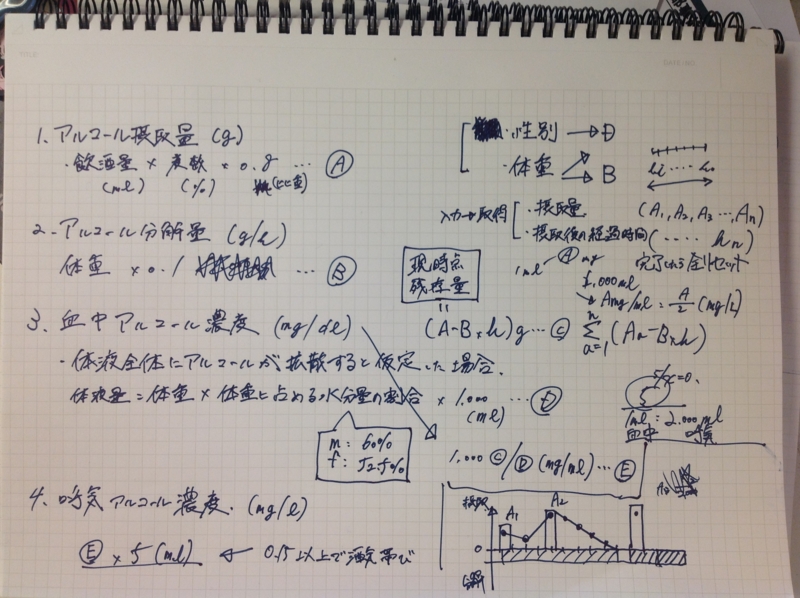 1. アルコール摂取量 (g)
・飲酒量 × 度数 × 0.8 … Ⓐ
(ml) (%) (比重)
2. アルコール分解量 (g/h)
体重 × 0.1 … Ⓑ
3. 血中アルコール濃度 (mg/dl)
・体液全体にアルコールが拡散すると仮定した場合。
体液量 = 体重 × 体重に占める水分量の割合 × 1.000 … Ⓓ
(ml)
m: 60%
f: 52.5%
4. 呼気アルコール濃度. (mg/l)
Ⓔ × 5 (ml) ← 0.15以上で酒気帯び
・性別 → D
・体重 → B
hi …… ho
入力→取得
・摂取量 (A1, A2, A3 …, An)
・摂取後の経過時間 (…… hn)
完了したら全リセット
現時点
残存量
=
(A-B×h)g … Ⓒ
1ml Ⓐ mg
1,000ml
→ Amg/ml = A/2 (mg/l)
n
Σ (An-B×h)
a=1
1.000 Ⓒ/Ⓓ (mg/ml) … Ⓔ
1ml : 2.000ml
血中 呼気
摂取
A1
A2
0
分解